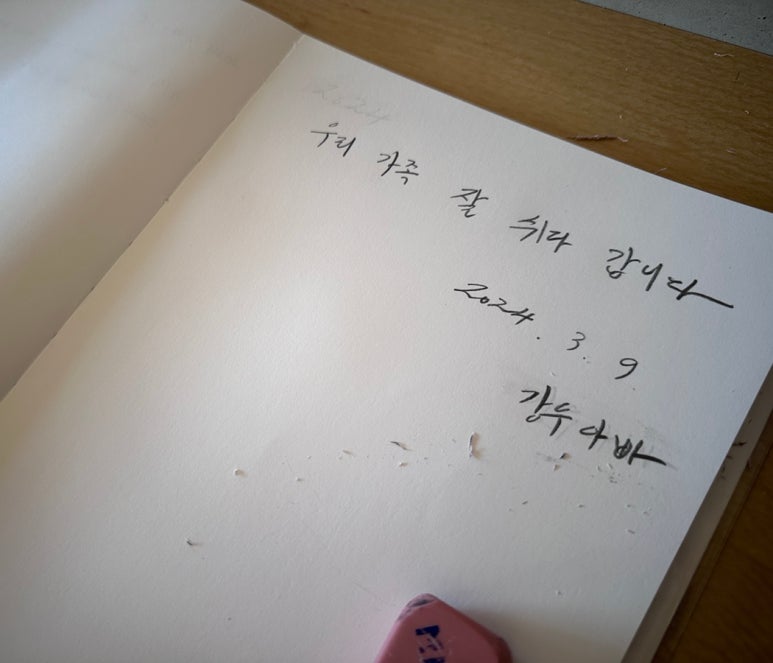 2024
우리 가족 잘 쉬다 갑니다
2024. 3. 9
강우아빠